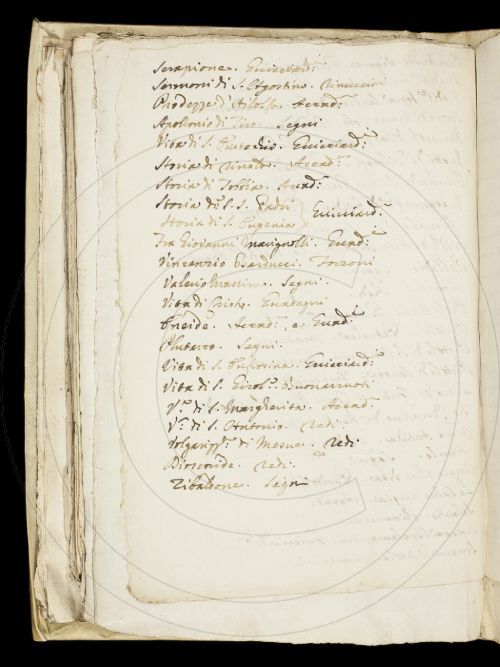 Serapione. Guicciard:
Sermoni di S. Agostino. Rinuccini
Prodezze d'
Apollonio di Tiro. Segni
Vita di S. Eustachio. Guicciard:
Storia di Rinaldo. Accad:
Storia di Tobbia. Accad:
Storia de S. S. Padri
Storia di S. Eugenia Guicciard:
Fra Giovanni Marignolli. Guad:
Vincenzio Bards
Valerio Massimo. Segni.
Vita di Crisṫo. Guadagni
Eneide. Accad: e Guad:
Plutarco. Segni.
Vita di S. Eufrosina. Guicciard:
Vita di S. Girol:º Buonarruoti
V:ª di S. Margherita. Accad.
V:ª di S. Antonio. Redi.
Volgarizz:º di Mesue. Redi
Dioscoride. Redi.
Zibaldone. Segni